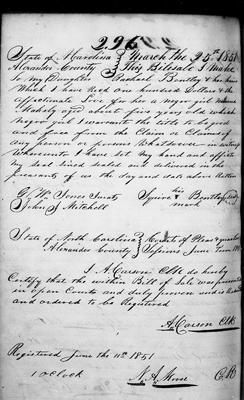 296
State of N Carolina } March the 25th 1851
Alexander County } This Bill Sale I Make
to my Daughter Rachael Bentley & her heirs
Which I have Recd one hundred Dollars & the
affectionate love for her a negro girl named
Mahaly aged about five years old which
negro girl I warrant the title to be good
and free from the Claim or Claims of
any person or persons Whatsoever in witness
Whereunto I have Set my hand and affixt
my Seal Sined Sealed and delivered in the
presents of us the day and date above Written
G. W. Jones Jurat his
John J. Mitchell Bentley
mark
State of North Carolina } Court of Pleas &
Alexander County } Sessions June Term 1851
I A Carson Clk do hereby
Certify that the within Bill of Sale was
in open Court and duly proven and
and ordered to be Registered
A Carson Clk
Registered June the 11th 1851
1 oClock